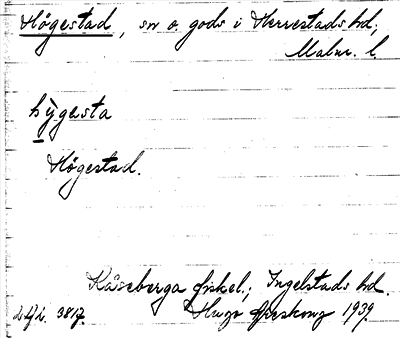 Högestad, sn o. gods i Herrestads hd,
Malm. l.
hy̆gesta
Högestad.
Kåseberga fiskel.; Ingelstads hd.
Hugo Areskoug 1939.
3817.